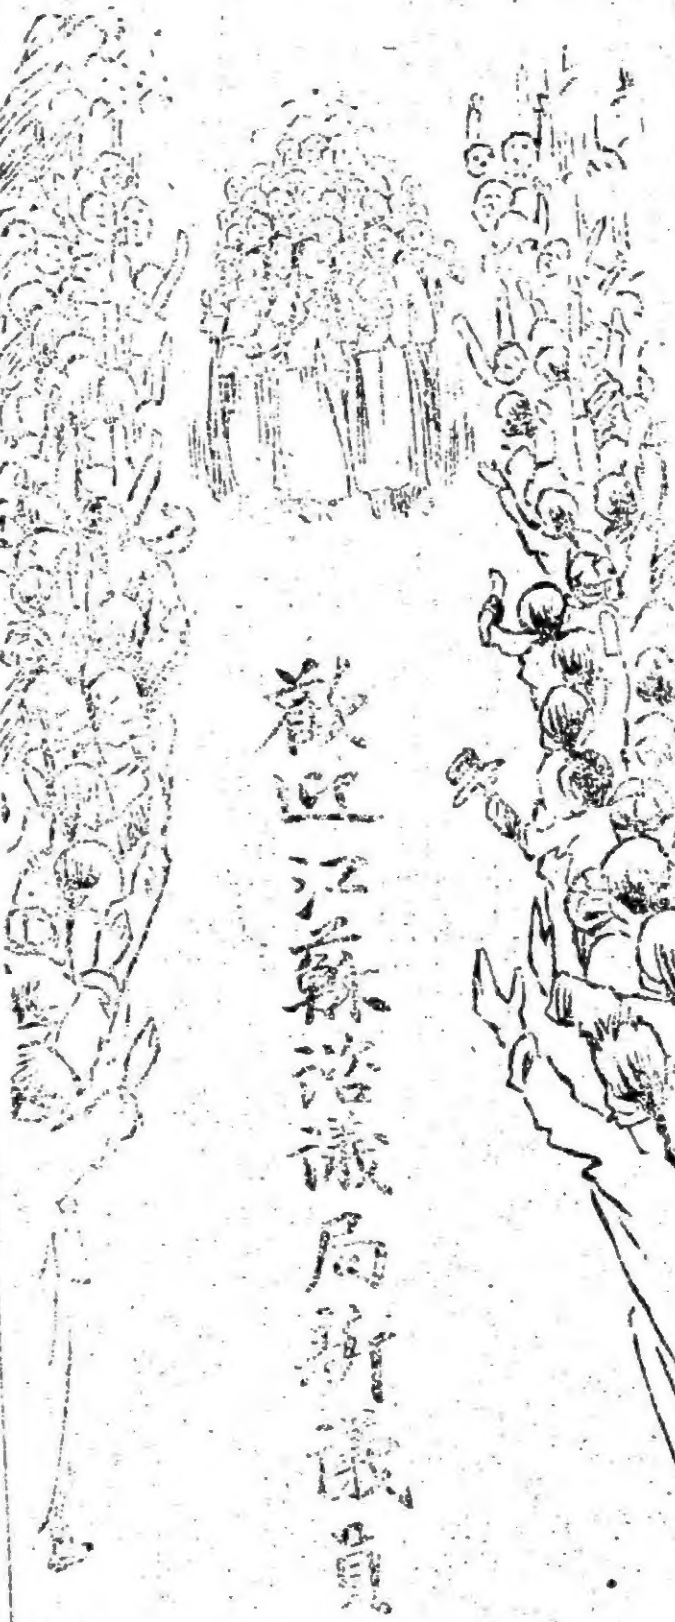 歡迎江蘇諮議局新議員